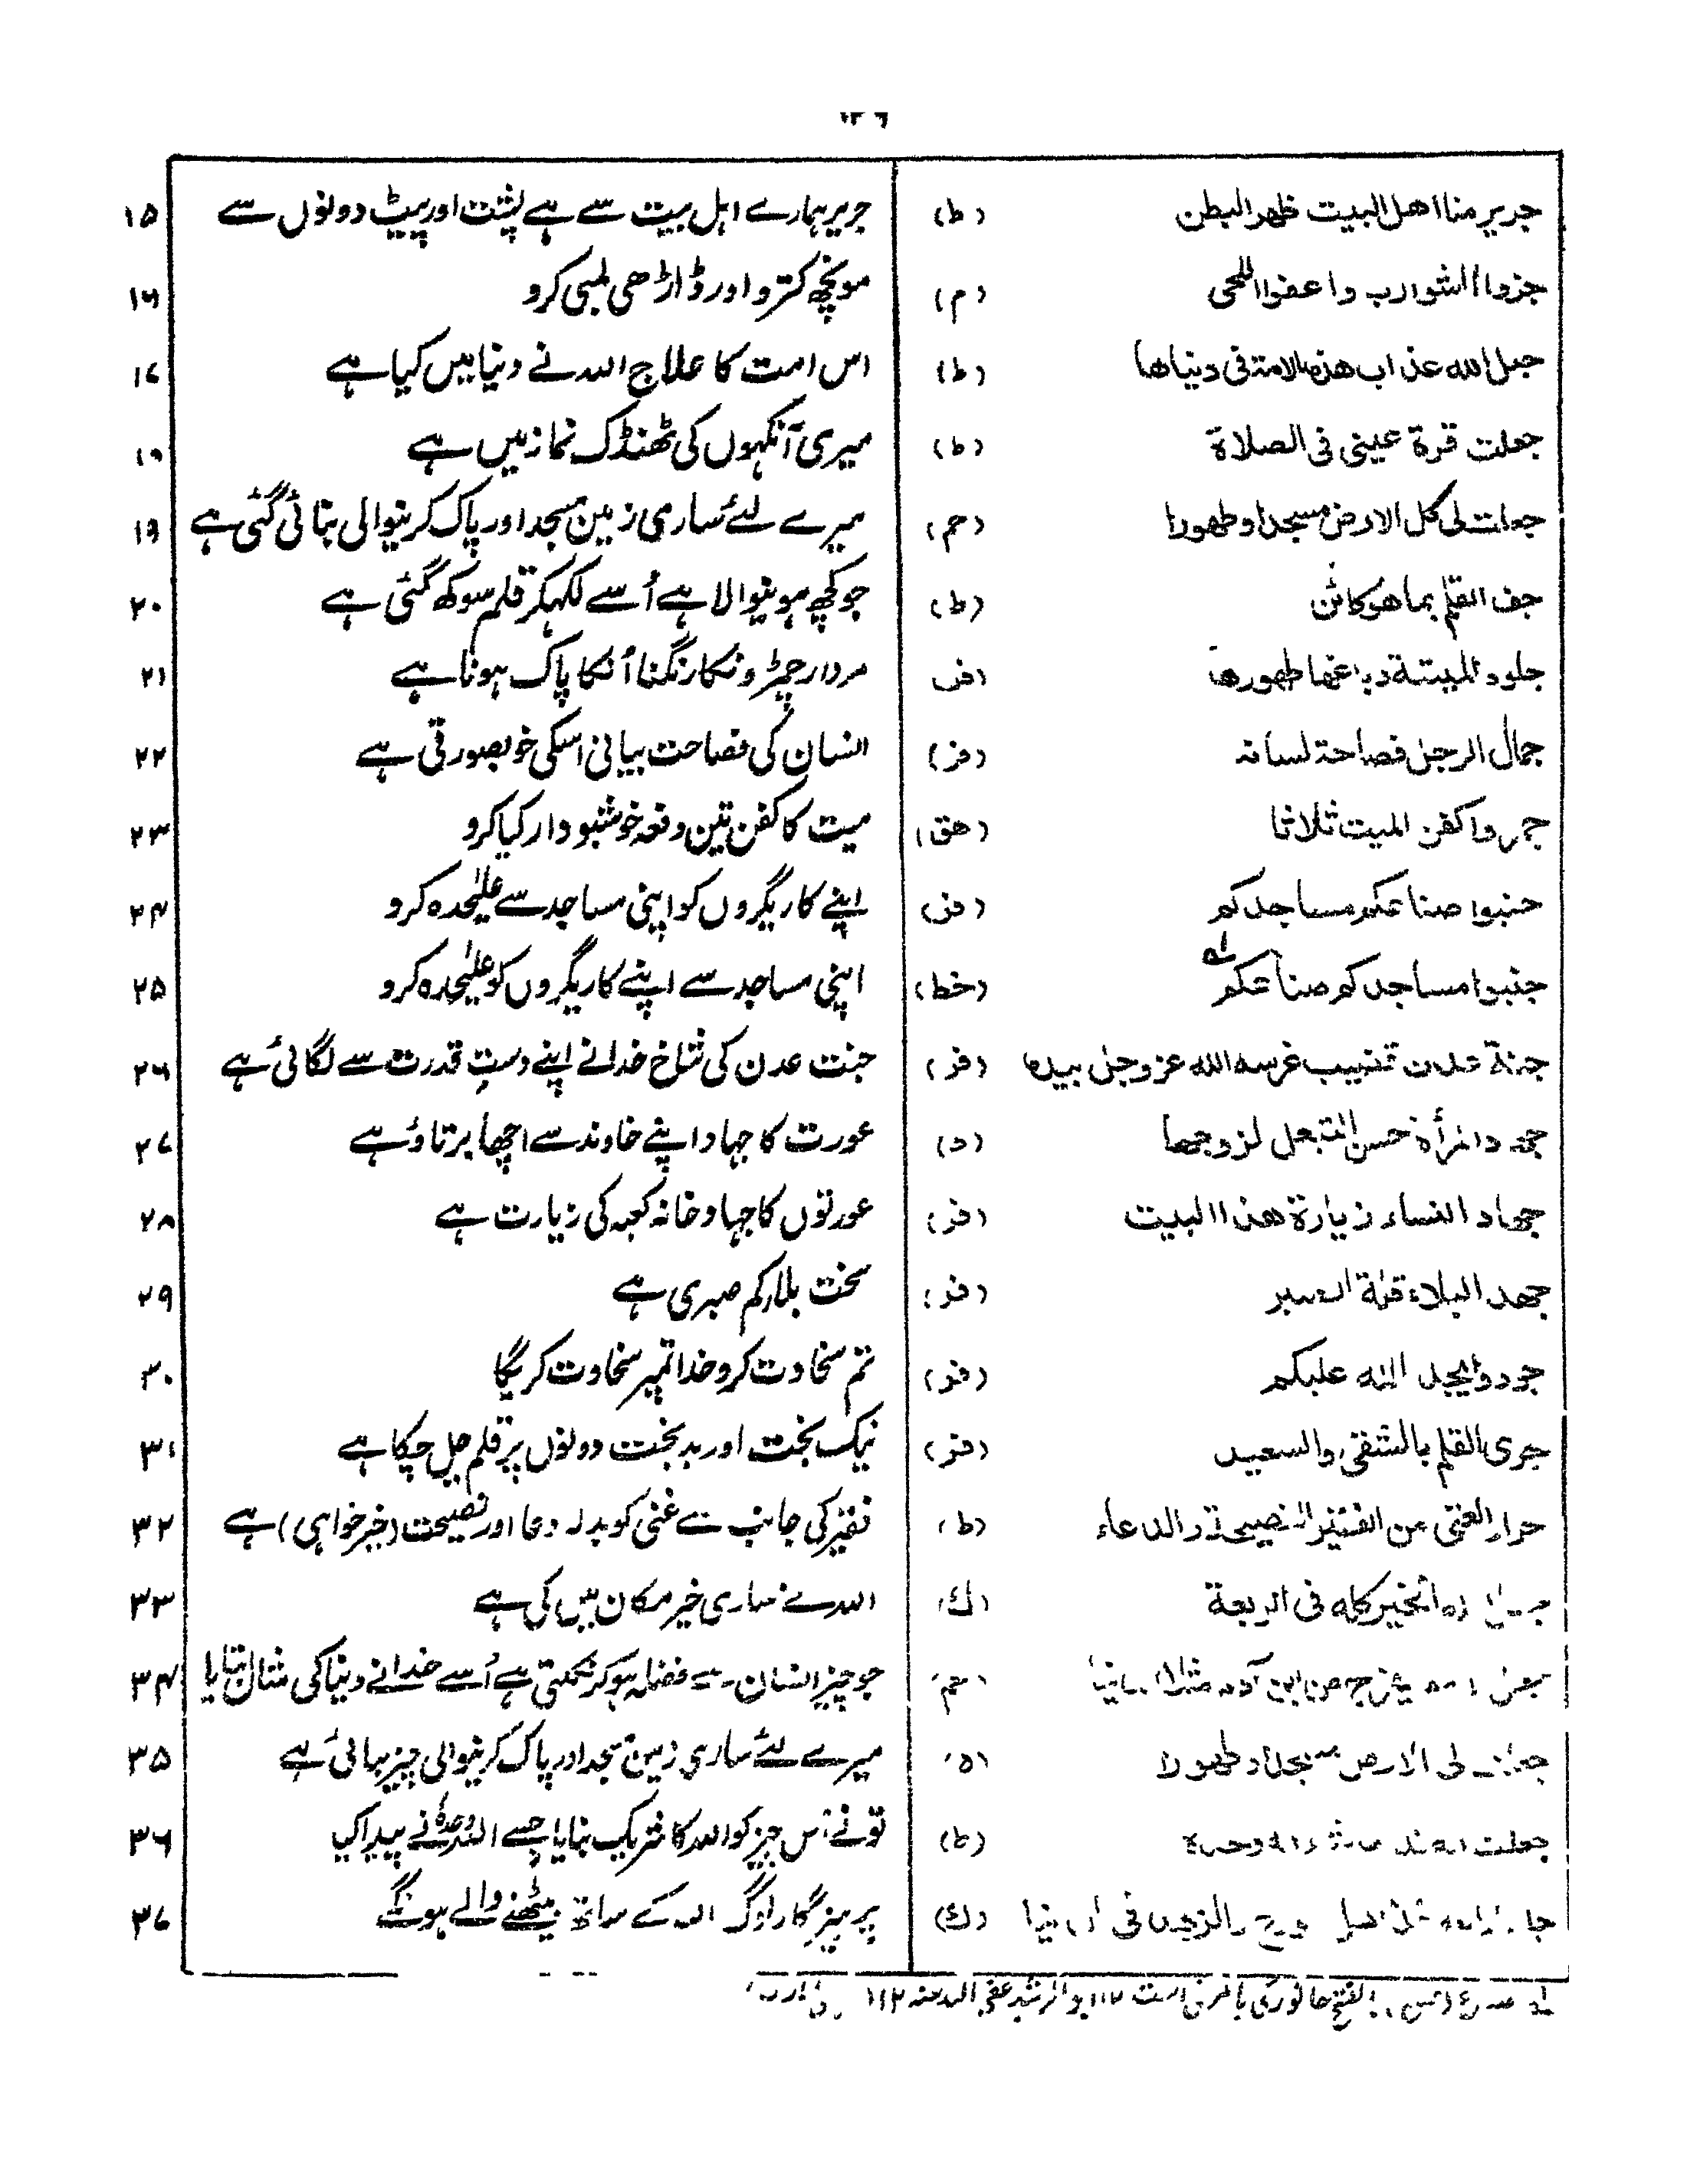 ۱۳۶
جریر منا اهل البیت ظهر البطن (ط) جریر ہمارے اہل بیت سے ہے پشت اور پیٹ دونوں سے ۱۵
جزوا الشوارب واعفوا اللحی (م) مونچھ کترو اور ڈاڑھی لمبی کرو ۱۶
جعل الله عذاب هذه الامة فی دنیاها (ط) اس امت کا علاج اللہ نے دنیا میں کیا ہے ۱۷
جعلت قرة عینی فی الصلاة (ط) میری آنکہوں کی ٹھنڈک نماز میں ہے ۱۸
جعلت لی کل الارض مسجدا وطهورا (حم) میرے لئے ساری زمین مسجد اور پاک کرنیوالی بنائی گئی ہے ۱۹
جف القلم بما هو کائن (ط) جو کچھ ہونیوالا ہے اُسے لکہکر قلم سوکھ گئی ہے ۲۰
جلود المیتة دباغها طهورها (فر) مردار چمڑونکا رنگنا اُنکا پاک ہونا ہے ۲۱
جمال الرجل فصاحة لسانه (فر) انسان کی فصاحت بیانی اسکی خوبصورتی ہے ۲۲
جمروا کفن المیت ثلاثا (هق) میت کا کفن تین دفعہ خوشبودار کیا کرو ۲۳
جنبوا صناعکم مساجدکم (فر) اپنے کاریگروں کو اپنی مساجد سے علیٰحدہ کرو ۲۴
جنبوا مساجدکم صناعکم لہ (خط) اپنی مساجد سے اپنے کاریگروں کو علیٰحدہ کرو ۲۵
جنة عدن قضیب غرسه الله عز وجل بیده (فر) جنت عدن کی شاخ خدا نے اپنے دستِ قدرت سے لگائی ہے ۲۶
جهاد المرأة حسن التبعل لزوجها (ه) عورت کا جہاد اپنے خاوند سے اچھا برتاؤ ہے ۲۷
جهاد النساء زیارة هذا البیت (فر) عورتوں کا جہاد خانہ کعبہ کی زیارت ہے ۲۸
جهد البلاء قلة الصبر (فر) سخت بلا کم صبری ہے ۲۹
جودوا یجد الله علیکم (فر) تم سخاوت کرو خدا تمپر سخاوت کریگا ۳۰
جری القلم بالشقی والسعید (فر) نیک بخت اور بد بخت دونوں پر قلم چل چکا ہے ۳۱
جزاء الغنی من الفقیر النصیحة والدعاء (ط) فقیر کی جانب سے غنی کو بدلہ دعا اور نصیحت (خیر خواہی) ہے ۳۲
الخیر کله فی الربعة (ك) اللہ نے ساری خیر مکان میں کی ہے ۳۳
یخرج من ابن آدم مثلا (حم) جو چیز انسان سے فضلہ ہو کر نکلتی ہے اُسے خدا نے دنیا کی مثال بنایا ۳۴
جعلت لی الارض مسجدا وطهورا (ه) میرے لئے ساری زمین مسجد اور پاک کرنیوالی چیز بنائی ہے ۳۵
جعلت وحده (ط) تو نے اُس چیز کو اللہ کا شریک بنایا جسے اللہ وحدہٗ نے پیدا کیا ۳۶
والزهد فی الدنیا (ك) پرہیزگار لوگ اللہ کے ساتھ بیٹھنے والے ہونگے ۳۷